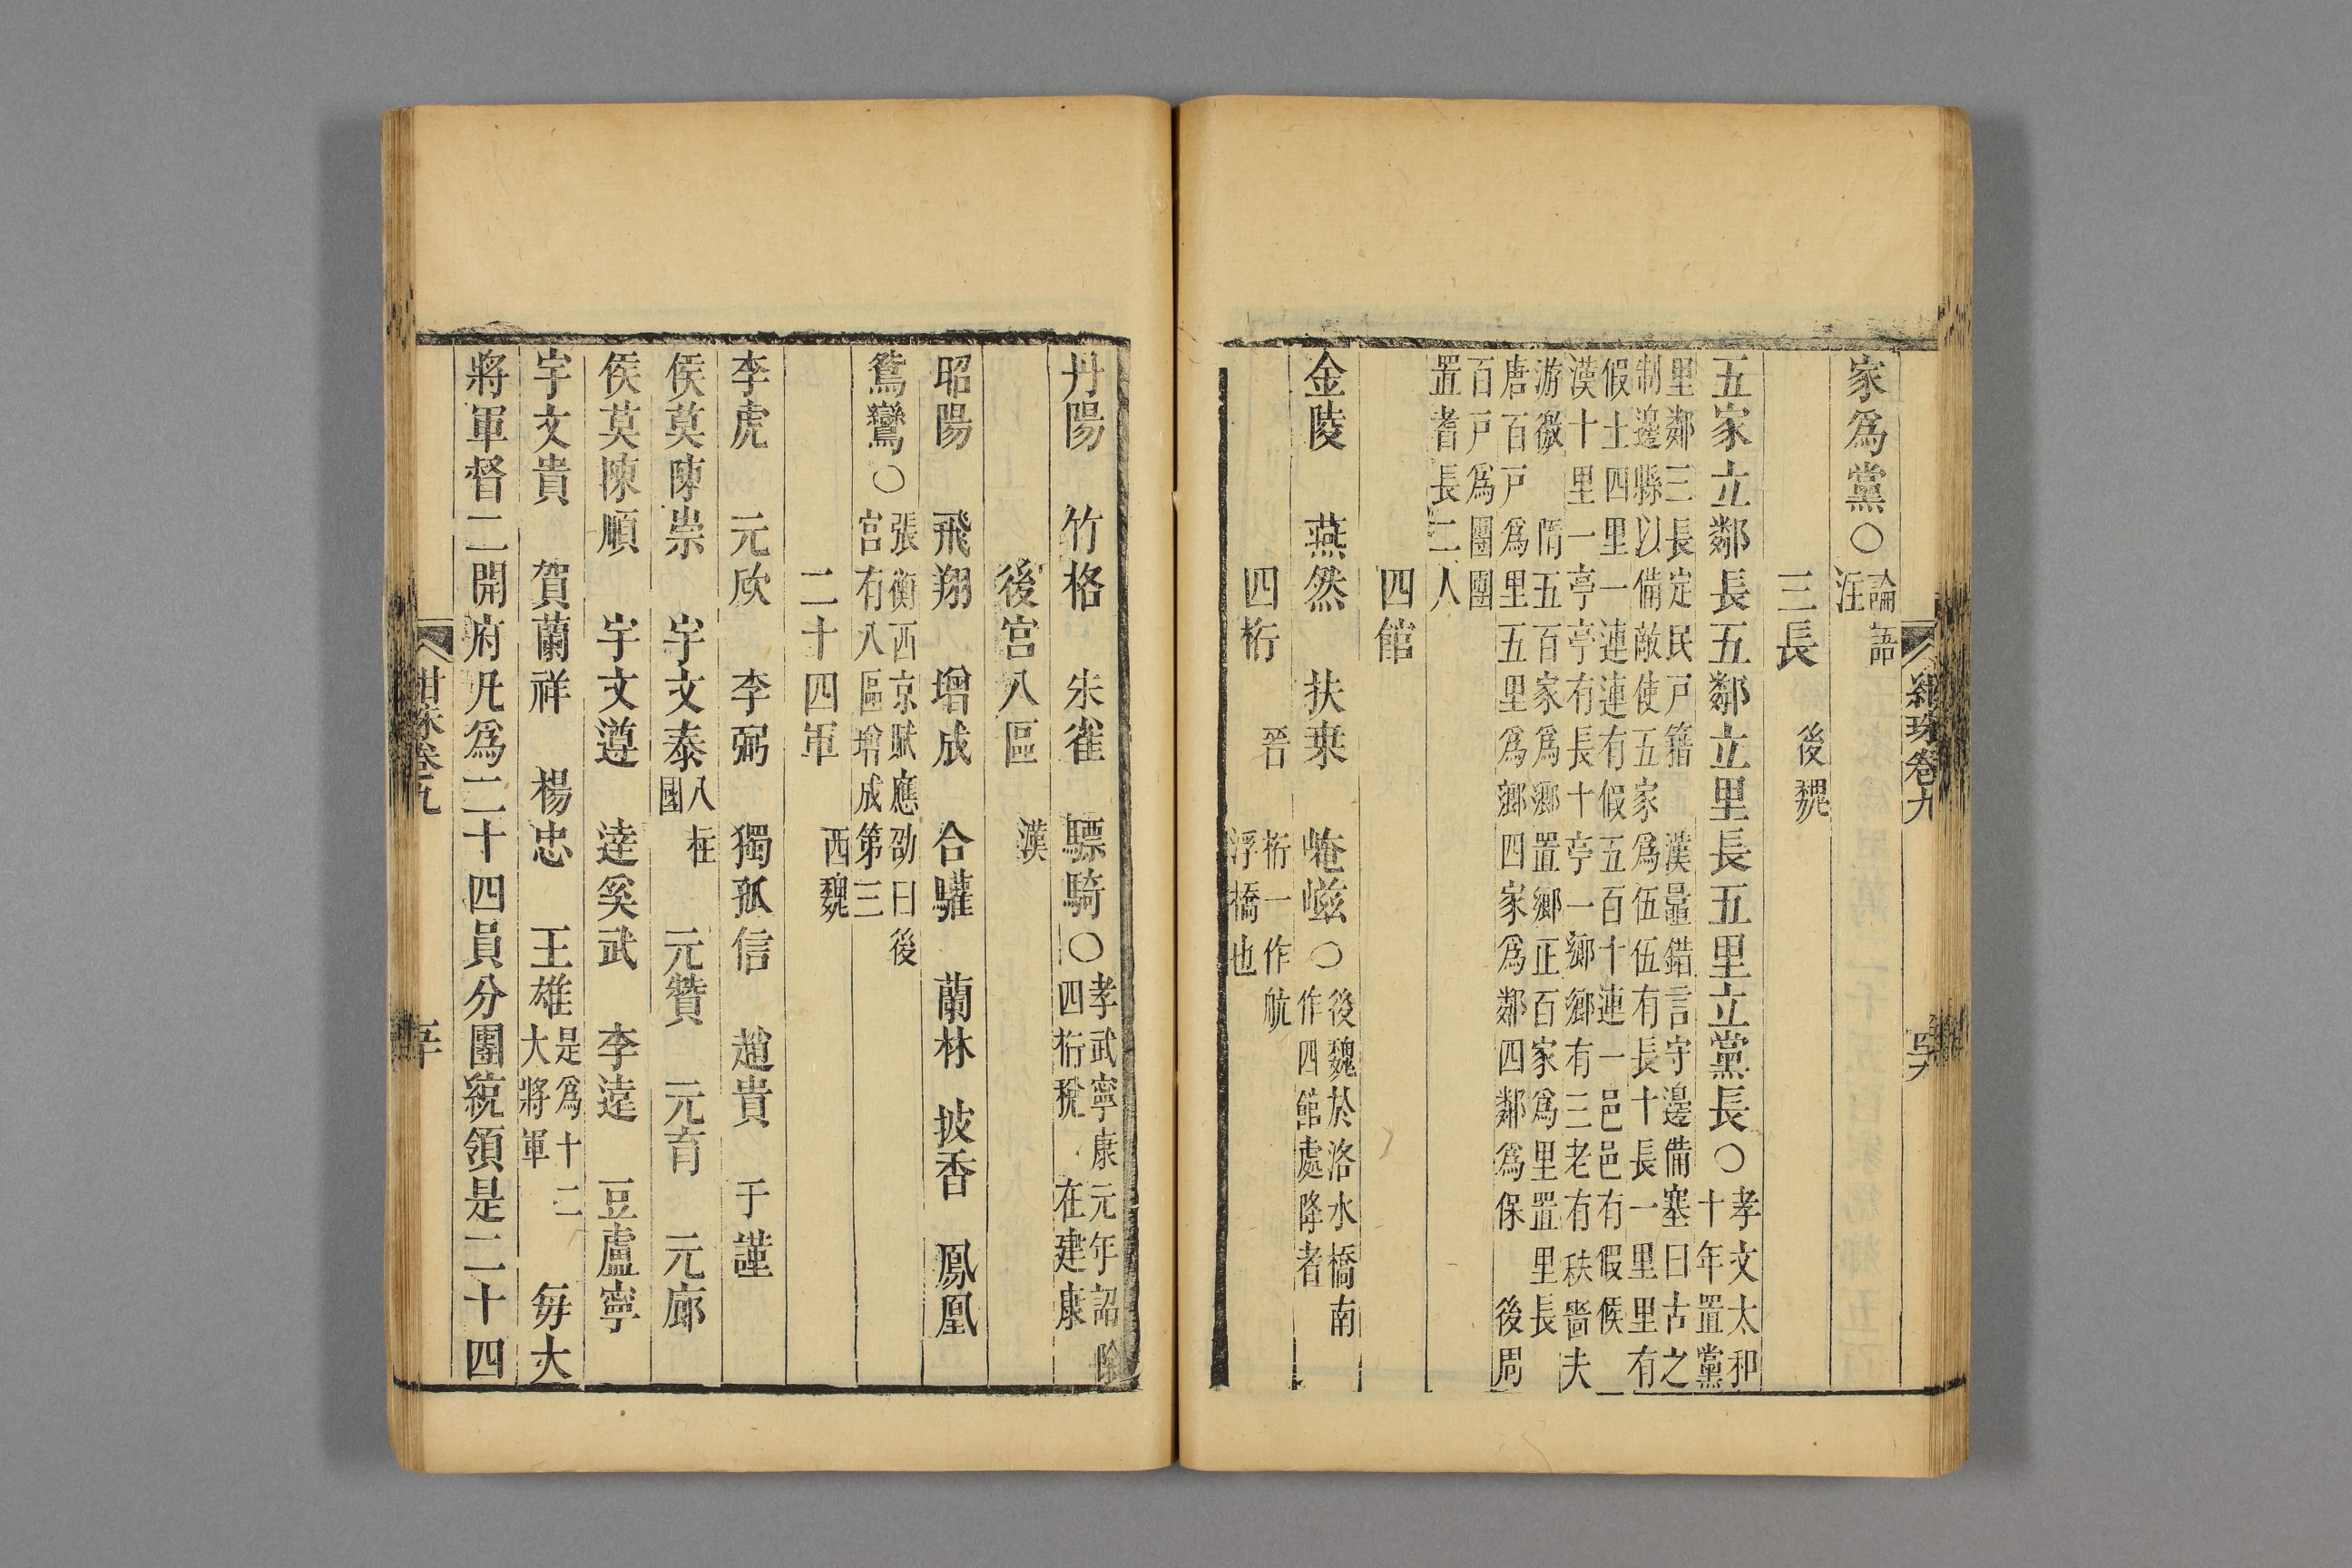 家爲黨○論語
注
三長 後魏
五家立鄰長五鄰立里長五里立黨長○孝文太和
十年置黨
里鄰三長定民戸籍 漢鼂錯言守邊備塞曰古之
制邊縣以備敵使五家爲伍伍有長十長一里里有
假士四里一連連有假五百十連一邑邑有假候
漢十里一亭亭有長十亭一鄉鄉有三老有秩嗇夫
游徼 隋五百家爲鄉置鄉正百家爲里置里長
唐百戸爲里五里爲鄉四家爲鄰四鄰爲保 後周
百戸爲團團
置耆長二人
四館
金陵 燕然 扶桒 崦嵫○後魏於洛水橋南
作四館處降者
四桁 晉 桁一作航
浮橋也
紺珠卷九
丹陽 竹格 朱雀 驃騎○孝武寧康元年詔除
四桁稅 在建康
後宮八區 漢
昭陽 飛翔 增成 合驩 蘭林 披香 鳳凰
鴛鸞○張衡西京賦應劭曰後
宮有八區增成第三
二十四軍 西魏
李虎 元欣 李弼 獨孤信 趙貴 于謹
侯莫陳崇 宇文泰八柱
國 元贊 元育 元廓
侯莫陳順 宇文遵 達奚武 李達 豆盧寧
宇文貴 賀蘭祥 楊忠 王雄是爲十二
大將軍 毎大
將軍督二開府凡爲二十四員分團統領是二十四